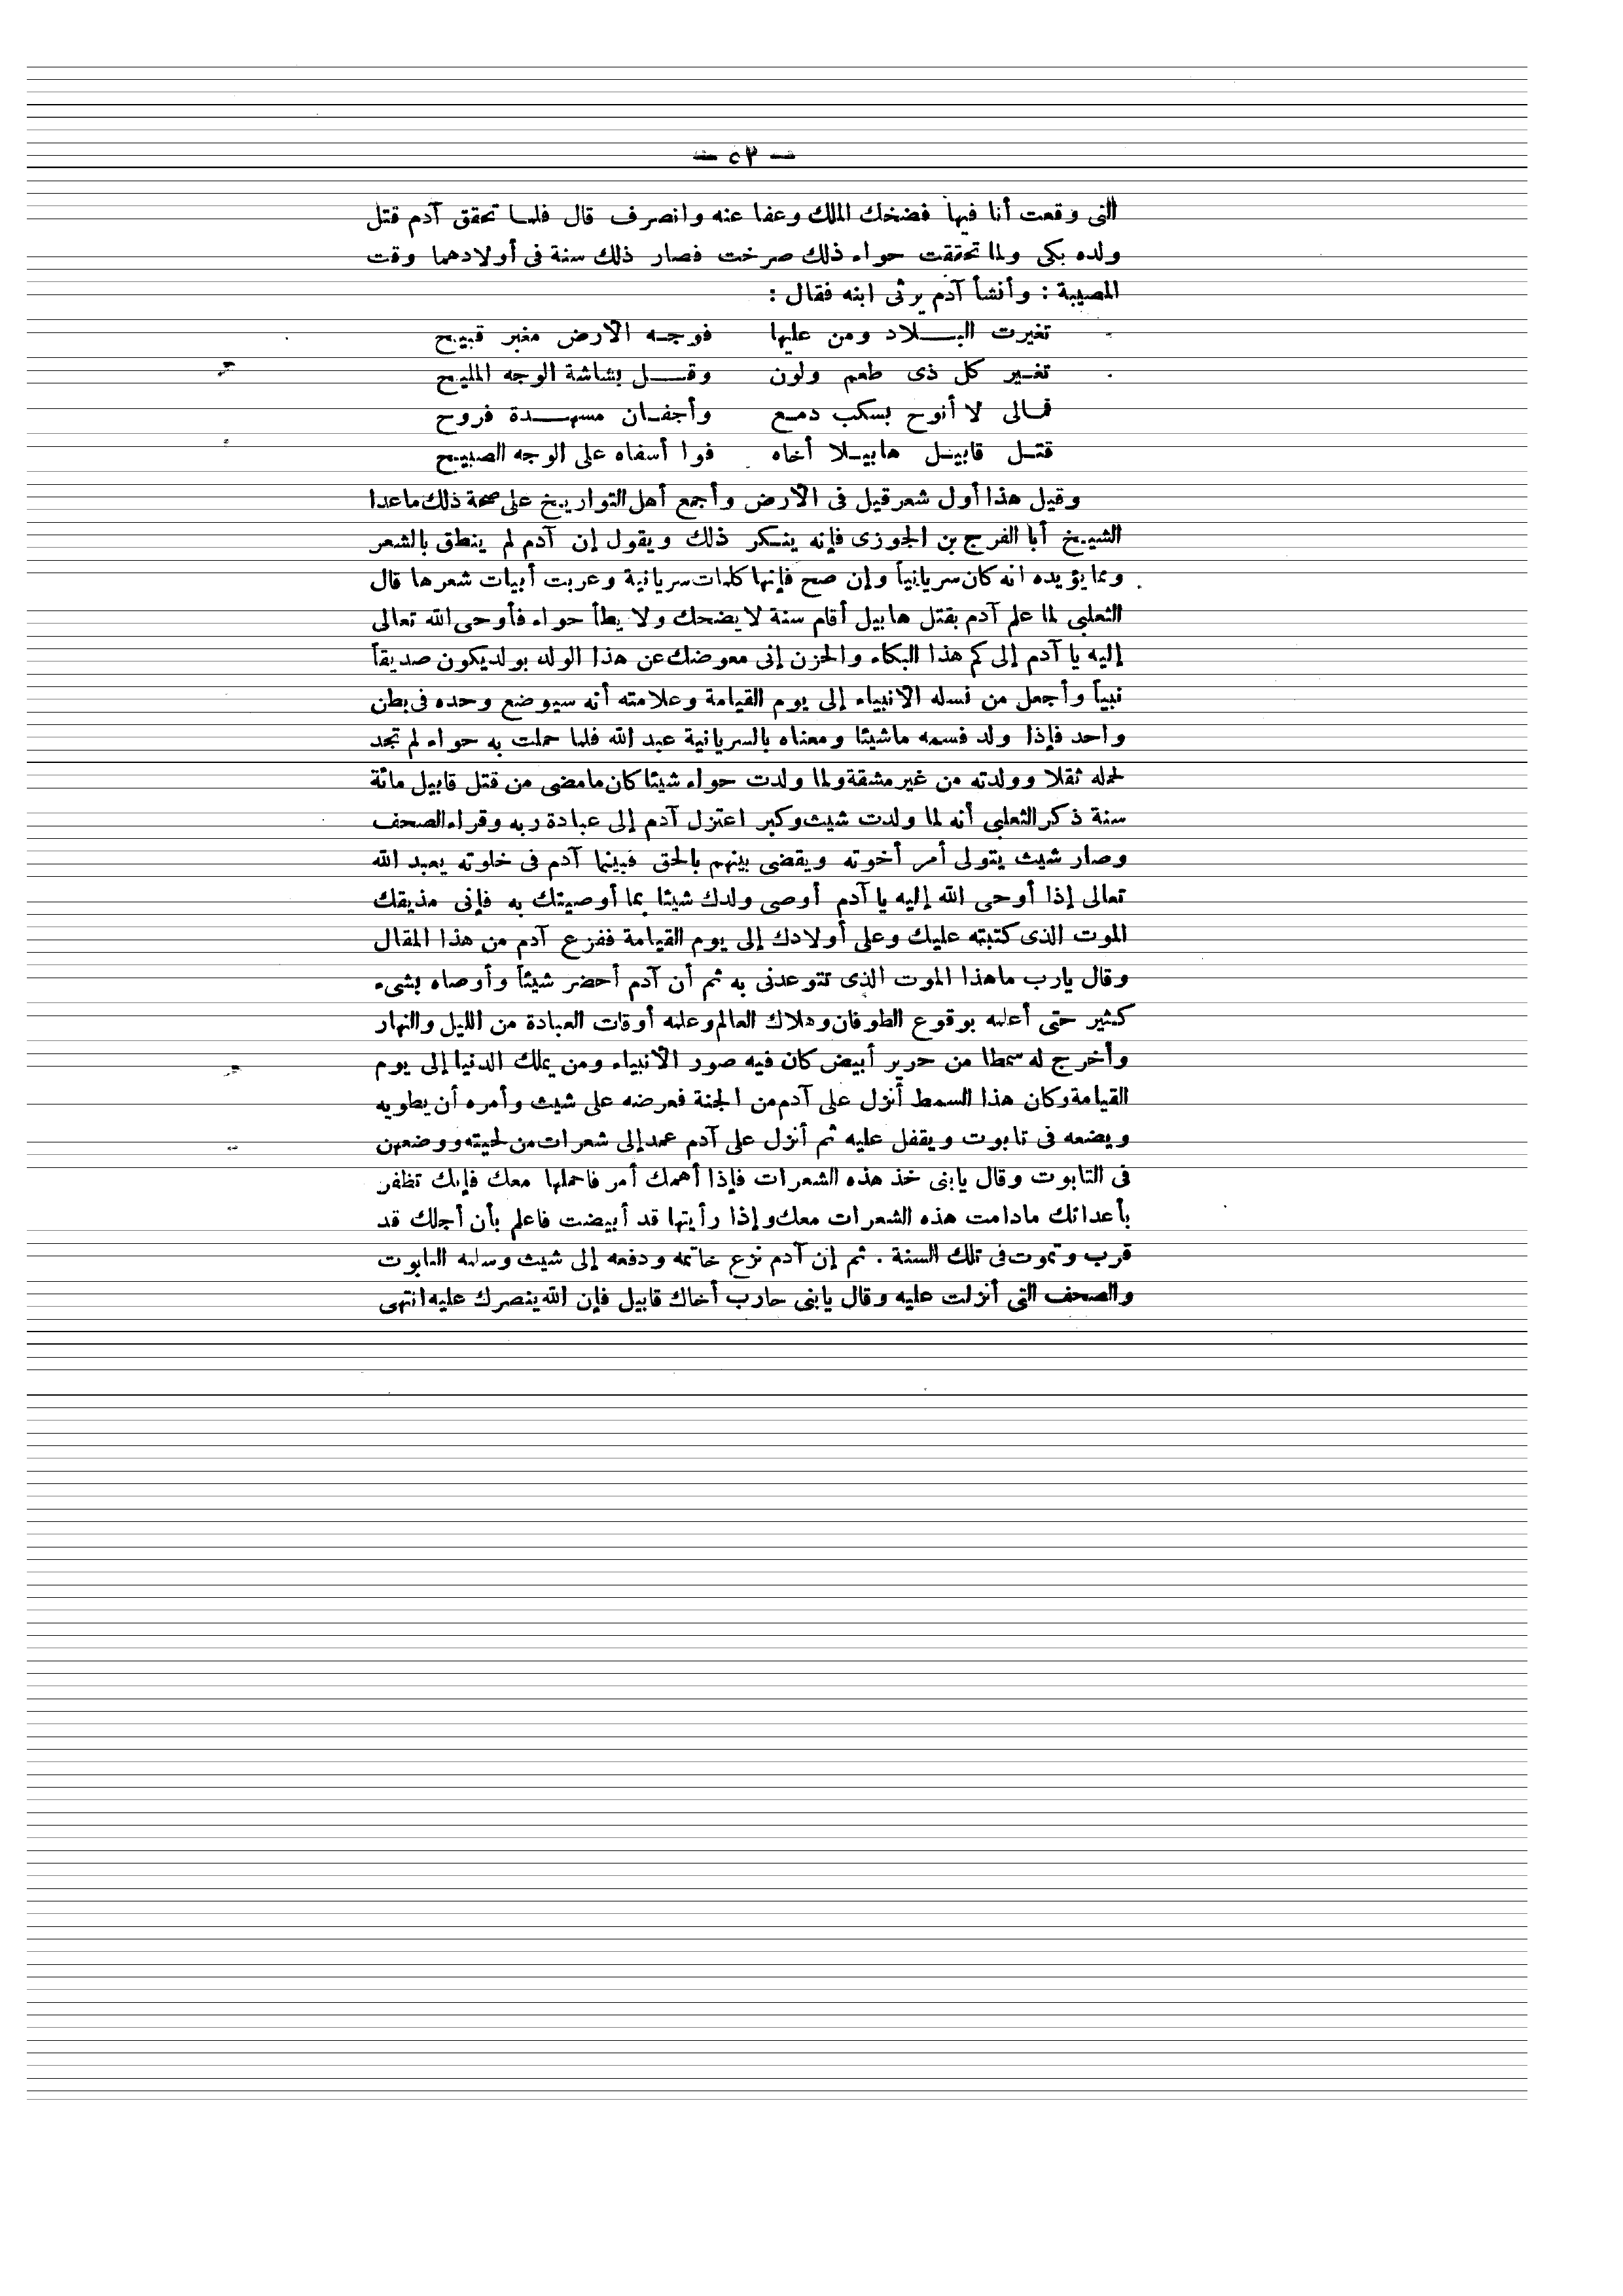 — ٥٣ —
التى وقعت أنا فيها فضحك الملك وعفا عنه وانصرف قال فلما تحقق آدم قتل
ولده بكى ولما تحققت حواء ذلك صرخت فصار ذلك سنة فى أولادهما وقت
المصيبة : وأنشأ آدم يرثى ابنه فقال :
تغيرت البلاد ومن عليها فوجه الارض مغبر قبيح
تغير كل ذى طعم ولون وقل بشاشة الوجه المليح
فمالى لا أنوح بسكب دمع وأجفان مسهدة قروح
قتل قابيل هابيلا أخاه فوا أسفاه على الوجه الصبيح
وقيل هذا أول شعر قيل فى الارض وأجمع أهل التواريخ على صحة ذلك ماعدا
الشيخ أبا الفرج بن الجوزى فإنه ينكر ذلك ويقول إن آدم لم ينطق بالشعر
ومما يؤيده انه كان سريانياً وإن صح فإنها كلمات سريانية وعربت أبيات شعرها قال
الثعلبى لما علم آدم بقتل هابيل أقام سنة لايضحك ولا يطأ حواء فأوحى الله تعالى
إليه يا آدم إلى كم هذا البكاء والحزن إنى معوضك عن هذا الولد بولد يكون صديقاً
نبياً وأجعل من نسله الانبياء إلى يوم القيامة وعلامته أنه سيوضع وحده فى بطن
واحد فإذا ولد فسمه ماشيئا ومعناه بالسريانية عبد الله فلما حملت به حواء لم تجد
لحمله ثقلا وولدته من غير مشقة ولما ولدت حواء شيئا كان مامضى من قتل قابيل مائة
سنة ذكر الثعلبى أنه لما ولدت شيث وكبر اعتزل آدم إلى عبادة ربه وقراء الصحف
وصار شيث يتولى أمر أخوته ويقضى بينهم بالحق فبينما آدم فى خلوته يعبد الله
تعالى إذا أوحى الله إليه يا آدم أوصى ولدك شيئا بما أوصيتك به فإنى مذيقك
الموت الذى كتبته عليك وعلى أولادك إلى يوم القيامة ففزع آدم من هذا المقال
وقال يارب ماهذا الموت الذى تتوعدنى به ثم أن آدم أحضر شيئاً وأوصاه بشىء
كثير حتى أعلمه بوقوع الطوفان وهلاك العالم وعلمه أوقات العبادة من الليل والنهار
وأخرج له سمطا من حرير أبيض كان فيه صور الانبياء ومن يملك الدنيا إلى يوم
القيامة وكان هذا السمط أنزل على آدم من الجنة فعرضه على شيث وأمره أن يطويه
ويضعه فى تابوت ويقفل عليه ثم أنزل على آدم عمد إلى شعرات من لحيته ووضعهن
فى التابوت وقال يابنى خذ هذه الشعرات فإذا أهمك أمر فاحملها معك فإنك تظفر
بأعدائك مادامت هذه الشعرات معك وإذا رأيتها قد أبيضت فاعلم بأن أجلك قد
قرب وتموت فى تلك السنة . ثم إن آدم نزع خاتمه ودفعه إلى شيث وسلمه التابوت
والصحف التى أنزلت عليه وقال يابنى حارب أخاك قابيل فإن الله ينصرك عليه انتهى